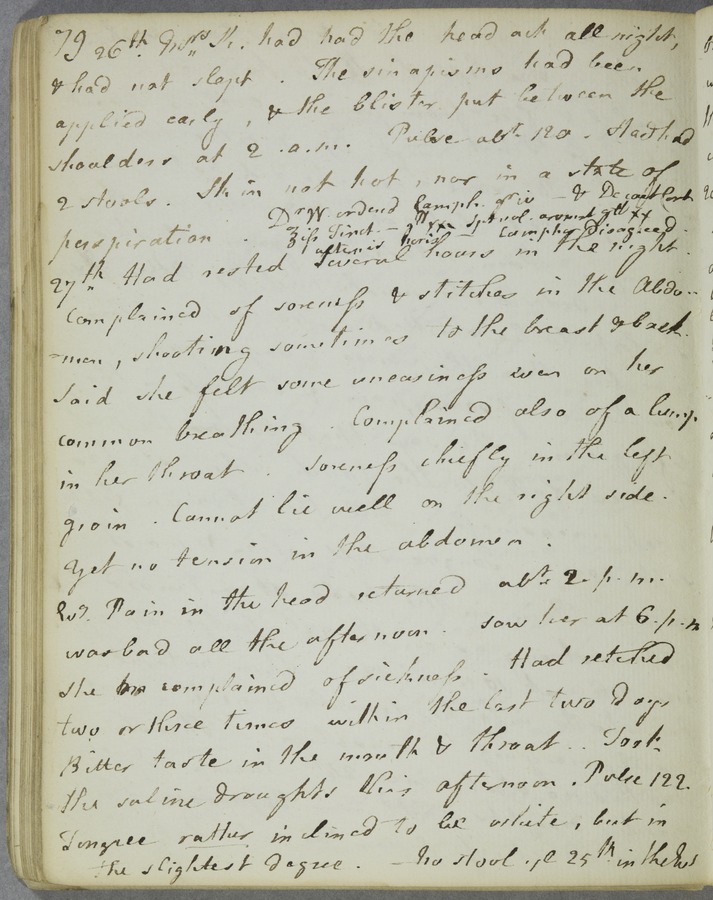 79 26th. Mrs. K. had had the head ach all night,
& had not slept. The sinapisms had been
applied early, & the blister put between the
shoulders at 2. a.m. Pulse abt. 120. Has had
2 stools. Skin not hot, nor in a state of
perspiration.
Dr W. ordered Camph. gr iv — & Decoct Cort
Ʒifs Tinct — Sp. vol. aromat gtt xx
alternis horis — Camphor Disagreed.
27th Had rested several hours in the night.
Complained of soreness & stitches in the Abdo-
-men, shooting sometimes to the breast & back.
Said she felt some uneasiness even on her
common breathing. Complained also of a lump
in her throat. Soreness chiefly in the left
groin. Cannot lie well on the right side.
Yet no tension in the abdomen.
Pain in the head returned abt. 2. p.m.
was bad all the afternoon. Saw her at 6. p.m
She complained of sickness. Had retched
two or three times within the last two days
Bitter taste in the mouth & throat.. Took
the saline draughts this afternoon. Pulse 122.
Tongue rather inclined to be white, but in
the slightest degree. — No stool 25th in the